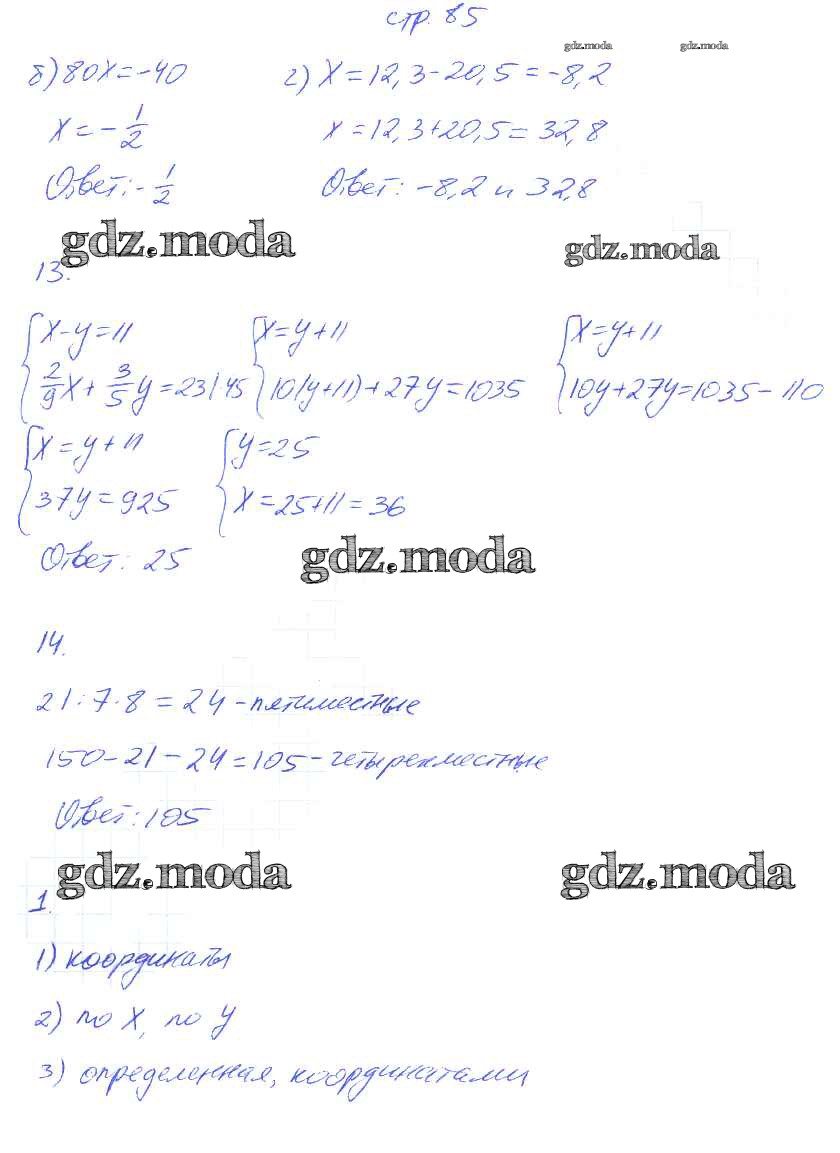 стр. 85
gdz.moda gdz.moda
б) 80x = -40 г) x = 12,3 - 20,5 = -8,2
x = - 1/2 x = 12,3 + 20,5 = 32,8
Ответ: - 1/2 Ответ: -8,2 и 32,8
gdz.moda gdz.moda
13.
{ x - y = 11 { x = y + 11 { x = y + 11
2/9 x + 3/5 y = 23 | · 45 10(y + 11) + 27y = 1035 10y + 27y = 1035 - 110
{ x = y + 11 { y = 25
37y = 925 x = 25 + 11 = 36
Ответ: 25
gdz.moda
14.
21 : 7 · 8 = 24 - пятиместные
150 - 21 - 24 = 105 - четырехместные
Ответ: 105
gdz.moda gdz.moda
1.
1) координаты
2) по x, по y
3) определенная, координатами